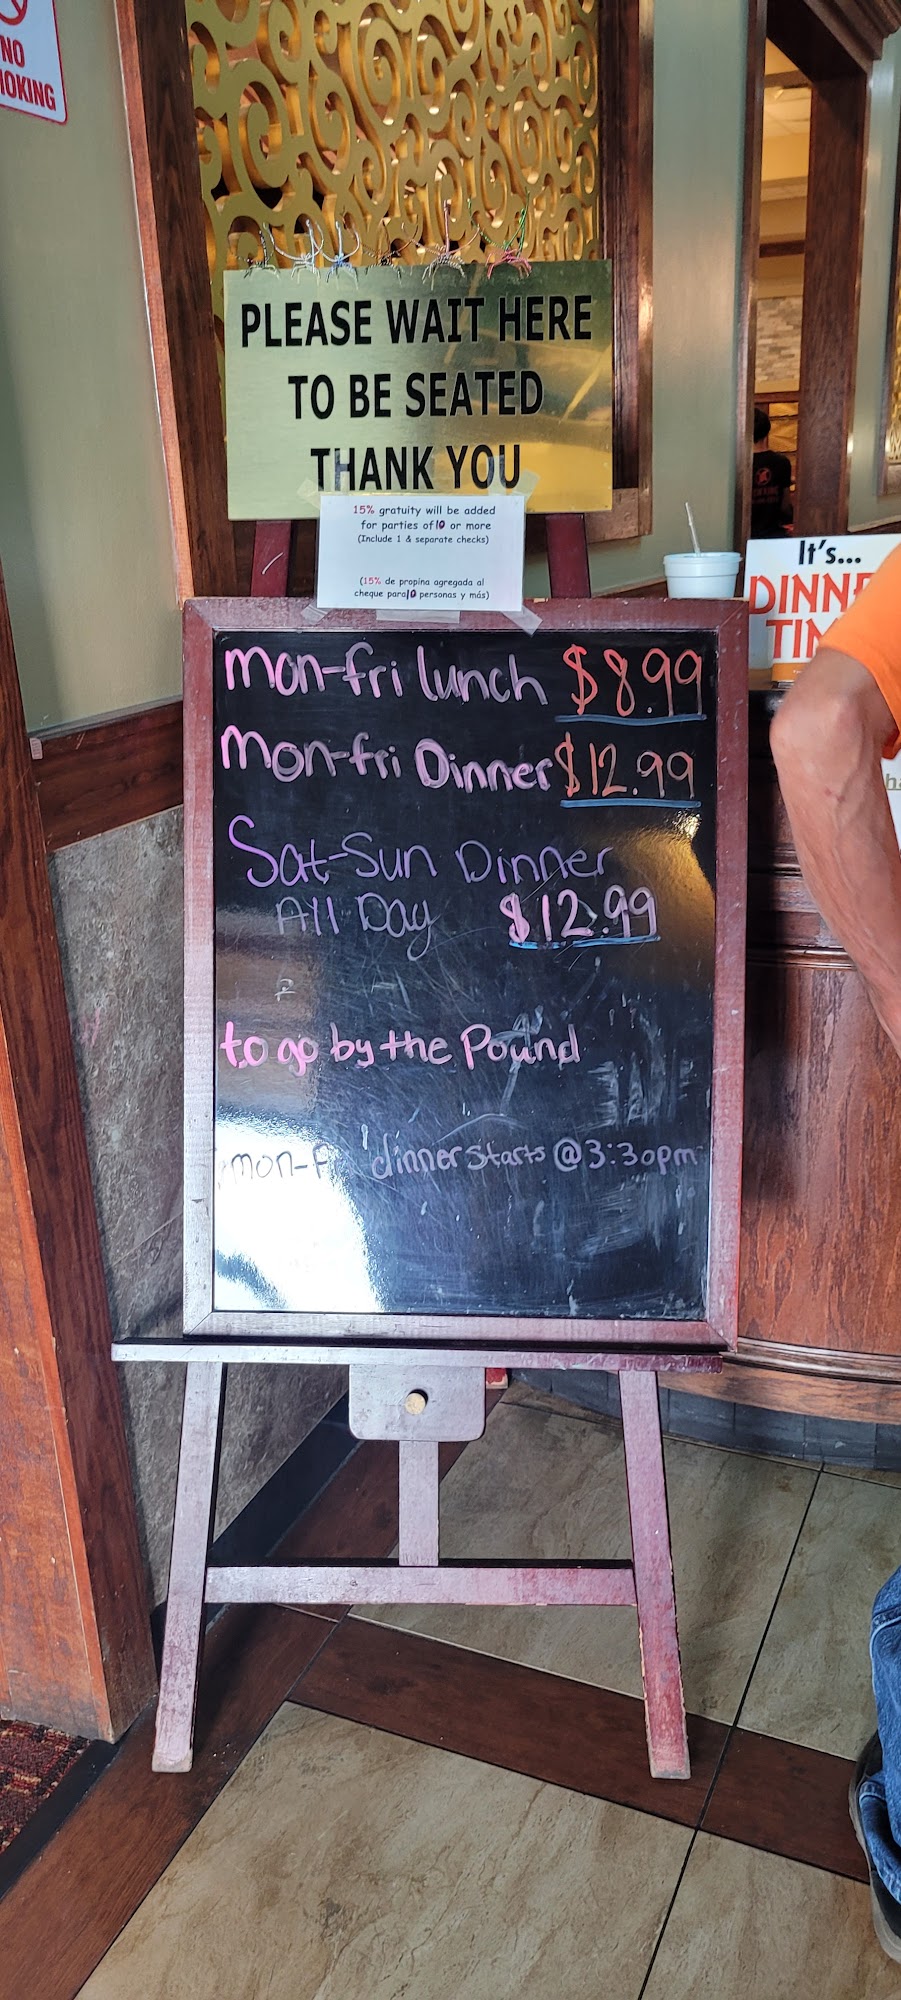 NO
PLEASE WAIT HERE
TO BE SEATED
THANK YOU
15% gratuity will be added
for parties of 10 or more
(Include 1 & separate checks)
(15% de propina agregada al
cheque para 10 personas y más)
It's...
mon-fri lunch $8.99
mon-fri Dinner $12.99
Sat-Sun Dinner
All Day $12.99
to go by the Pound
mon-fri dinner starts @ 3:30pm